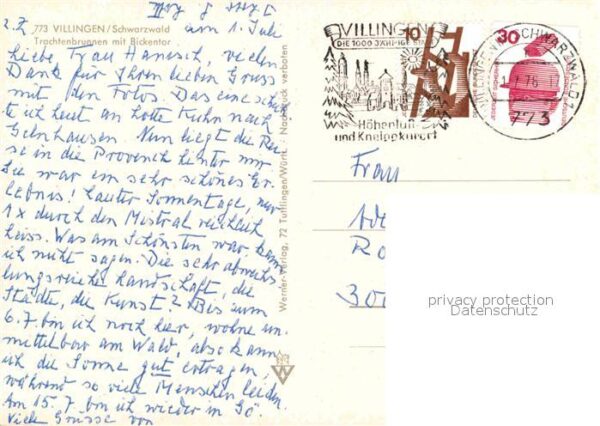 773 VILLINGEN/Schwarzwald
Trachtenbrunnen mit Bickentor
2.Z am 1. Juli
liebe Frau Hanesch, vielen
Dank für Ihren lieben Gruss
mit den Fotos. Das eine schick
te ich heut an Lotte Kuhn nach
Gelnhausen. Nun liegt die Rei
se in die Provence hinter mir
Sie war ein sehr schönes Er
lebnis! Lauter Sonnentage, nur
1x durch den Mistral vielleicht
heiss. Was am Schönsten war kann
ich nicht sagen. Die sehr abwechs
lungsreiche Landschaft, die
Städte, die Kunst? Bis zum
6.7. bin ich noch hier, wohne un
mittelbar am Wald, also kann
ich die Sonne gut ertragen,
während so viele Menschen leiden.
Am 15.7 bin ich wieder in Gö.
Viele Grüsse von
Werner-Verlag, 72 Tuttlingen/Württ. · Nachdruck verboten
VILLINGEN
DIE 1000 JÄHRIGE STADT
Höhenluft-
und Kneippkurort
10
30
VILLINGEN, SCHWARZWALD 1
76
773
Frau
Ro
300
privacy protection
Datenschutz